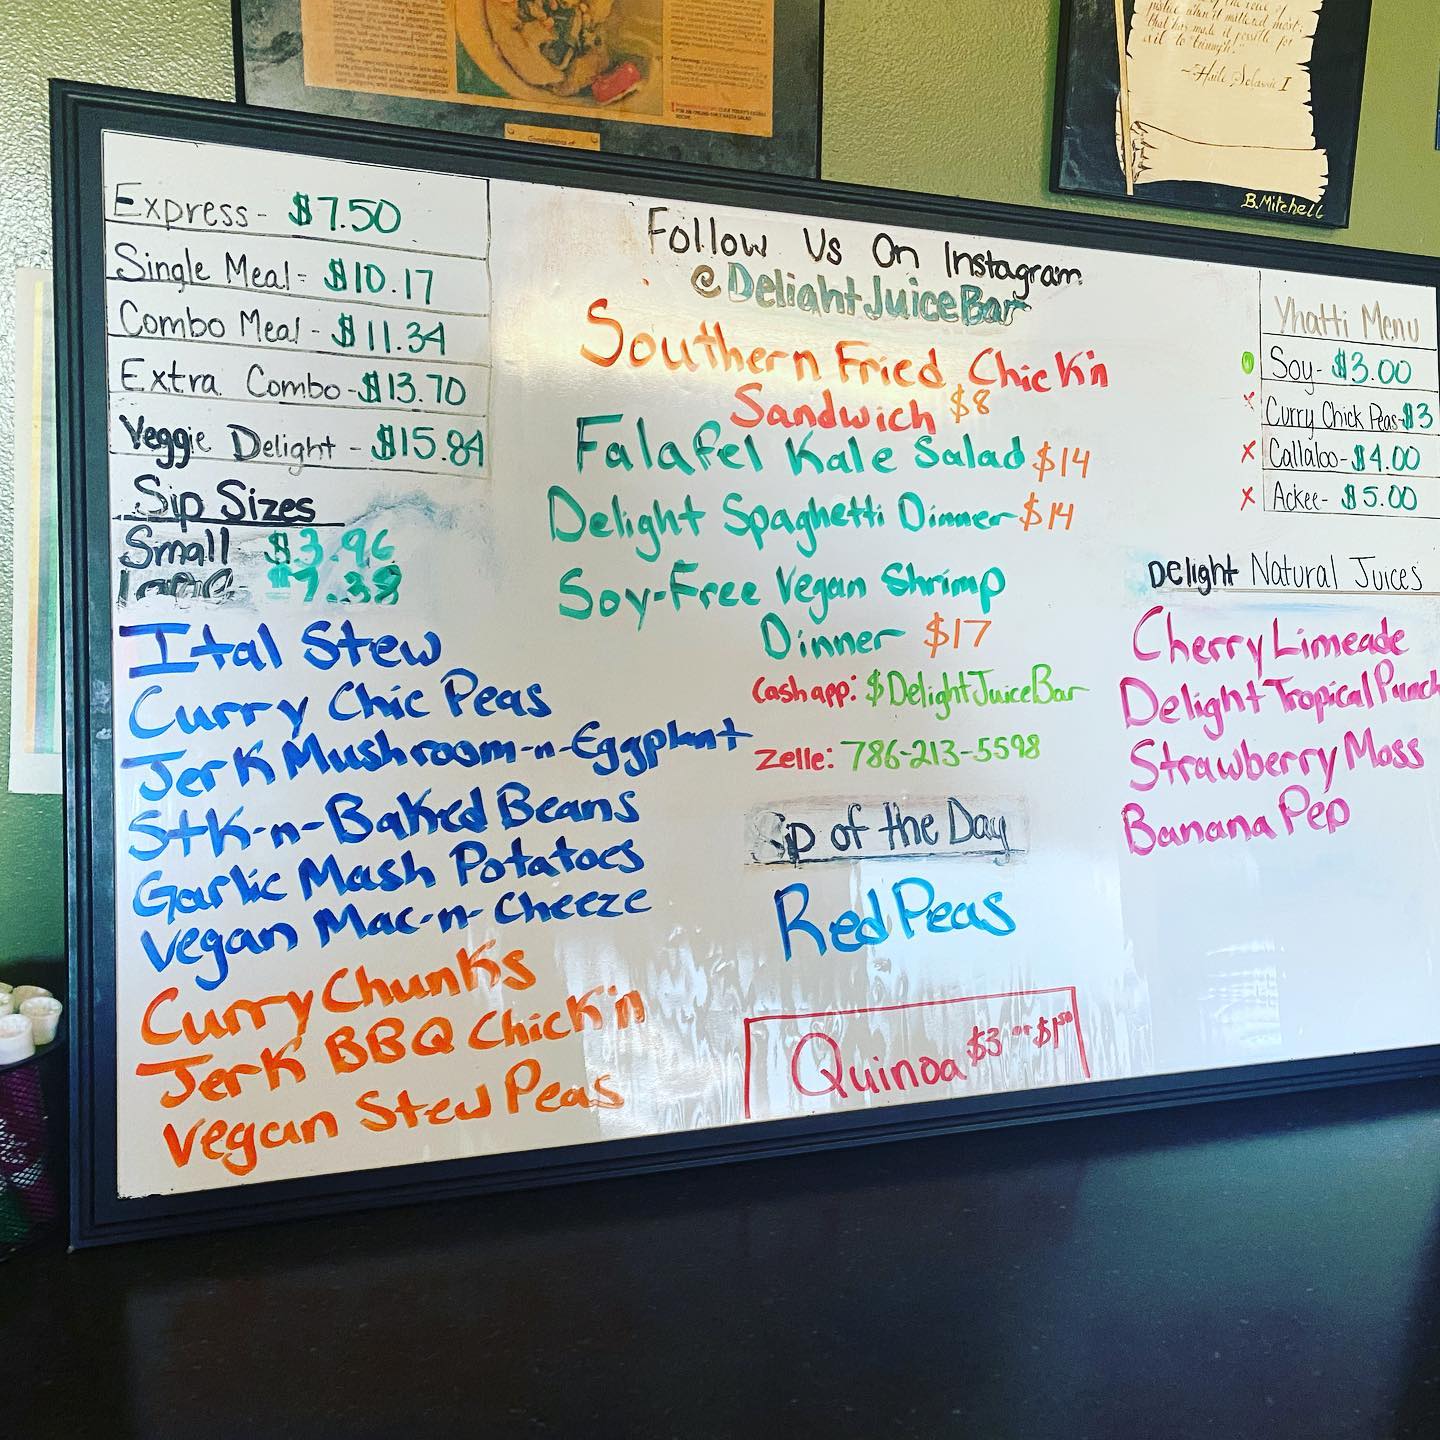 justice when it mattered most;
that has made it possible for
evil to triumph"
~Haile Selassie I
B.Mitchell
Compliments of
Express- $7.50
Single Meal- $10.17
Combo Meal- $11.34
Extra Combo-$13.70
Veggie Delight - $15.84
Sip Sizes
Small $3.96
Large- $7.38
Ital Stew
Curry Chic Peas
Jerk Mushroom-n-Eggplant
Stk-n-Baked Beans
Garlic Mash Potatoes
Vegan Mac-n-Cheeze
Curry Chunks
Jerk BBQ Chick'n
Vegan Stew Peas
Follow Us On Instagram
@DelightJuiceBar
Southern Fried Chick'n
Sandwich $8
Falafel Kale Salad $14
Delight Spaghetti Dinner-$14
Soy-Free Vegan Shrimp
Dinner $17
Cashapp: $DelightJuiceBar
Zelle: 786-213-5598
Sip of the Day
Red Peas
Quinoa $3 or $1.50
Yhatti Menu
Soy- $3.00
x Curry Chick Peas-$3
x Callaloo-$4.00
x Ackee- $5.00
Delight Natural Juices
Cherry Limeade
Delight Tropical Punch
Strawberry Moss
Banana Pep